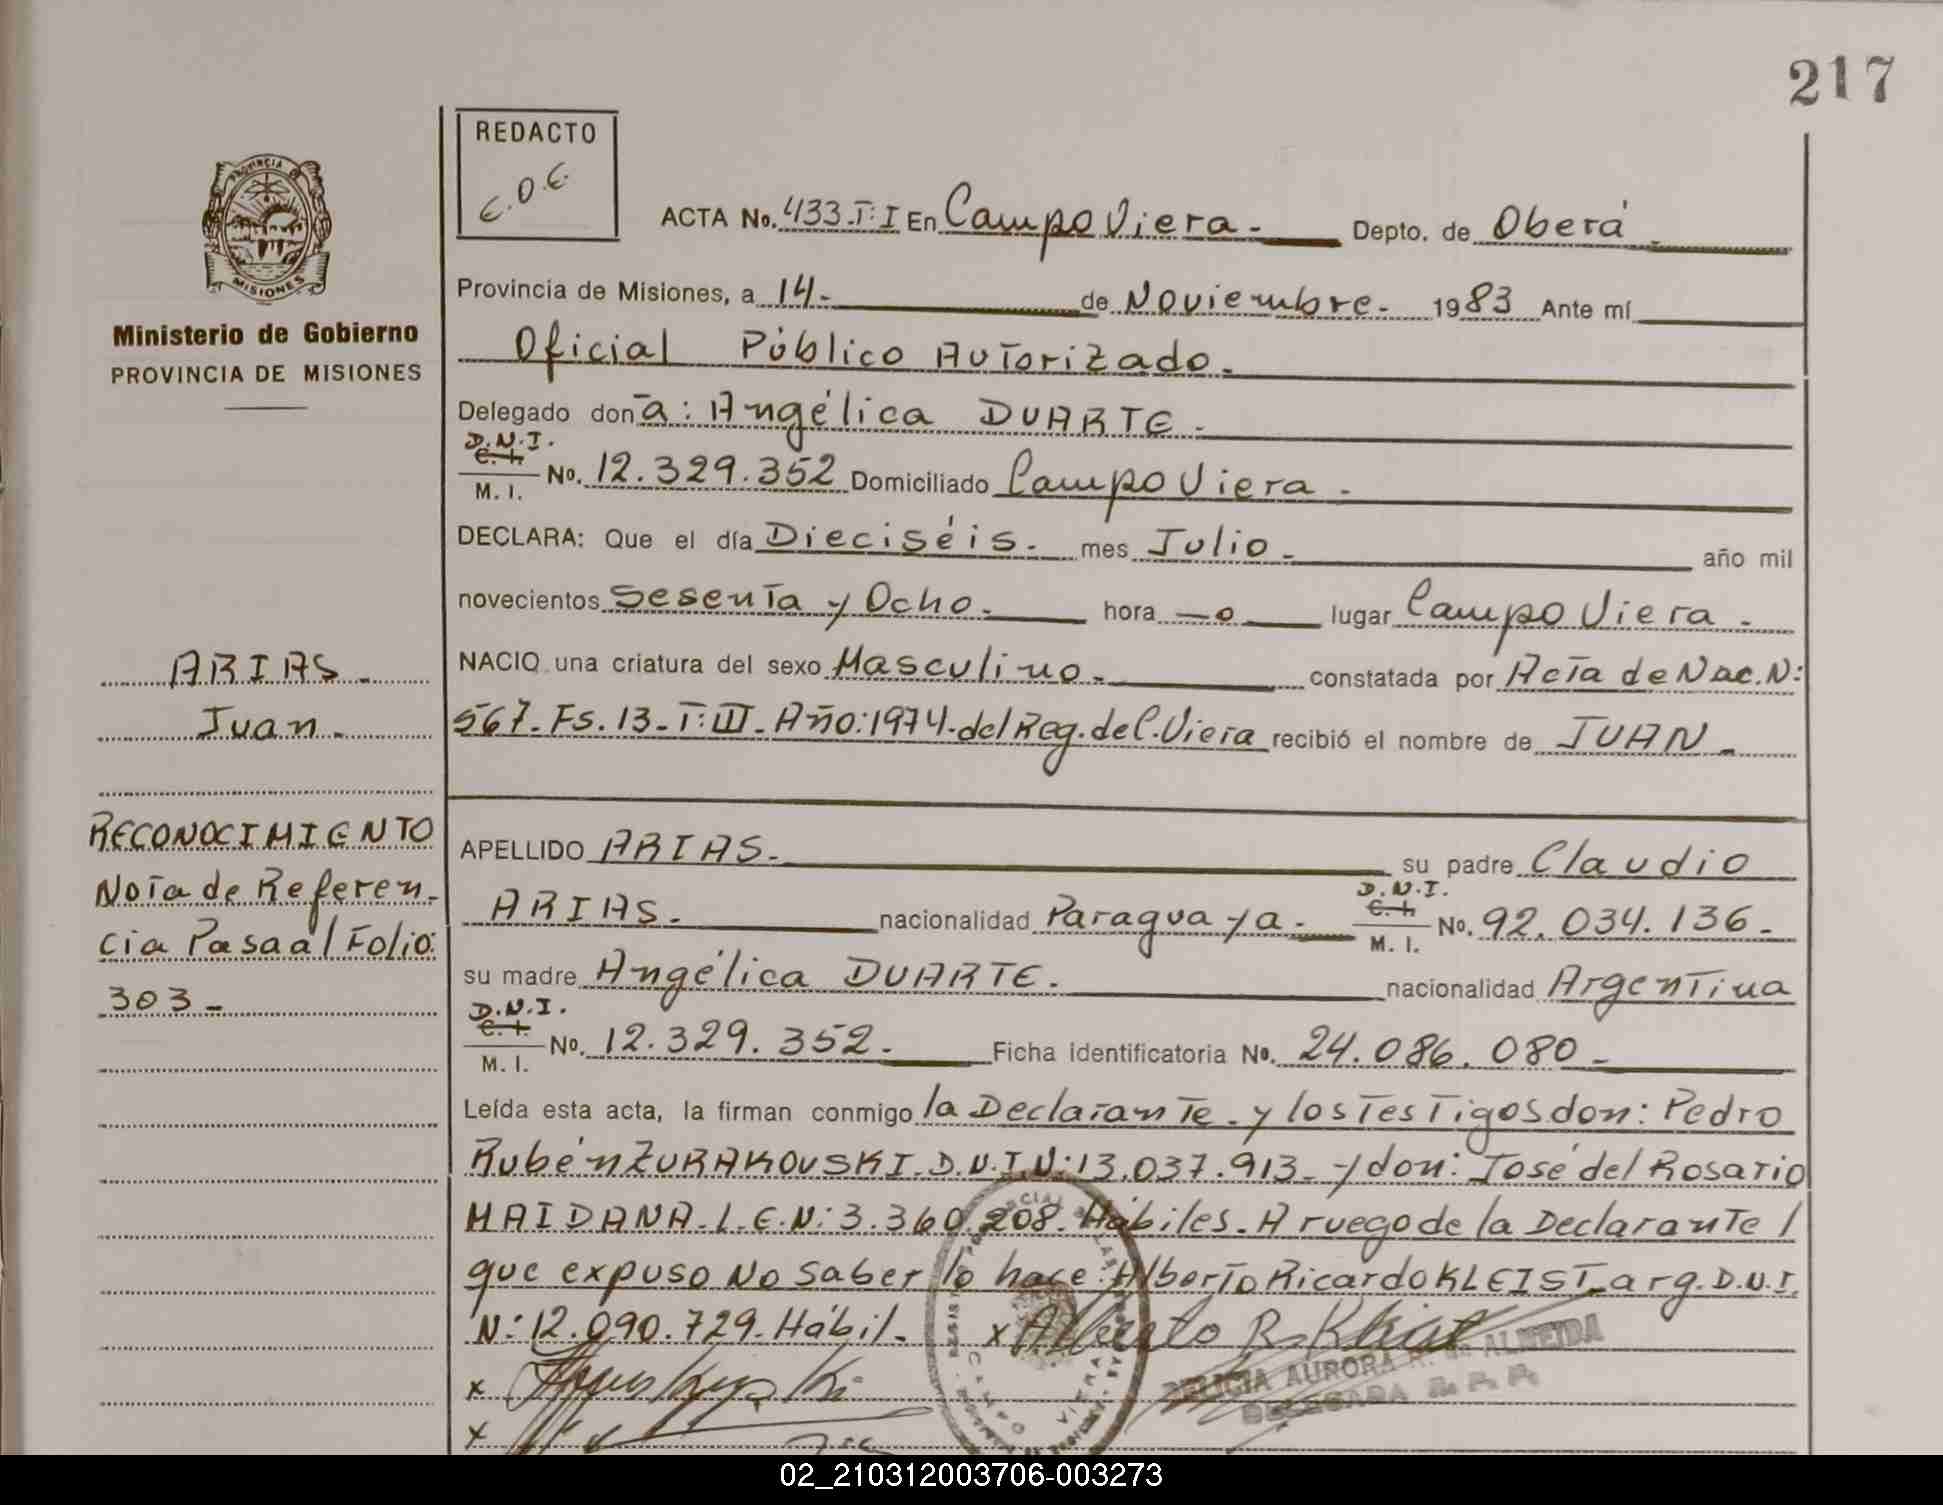 217
REDACTO
E.D.E.
PROVINCIA
MISIONES
Ministerio de Gobierno
PROVINCIA DE MISIONES
ACTA No. 433-T:I En Campo Viera.- Depto. de Oberá
Provincia de Misiones, a 14.- de Noviembre.- 1983 Ante mí
Oficial Público Autorizado.
Delegado don a: Angélica DUARTE.-
D.N.I.
C. I.
M. I. No. 12.329.352 Domiciliado Campo Viera.
DECLARA: Que el día Dieciséis.- mes Julio.- año mil
novecientos Sesenta y Ocho.- hora —o— lugar Campo Viera.-
NACIO una criatura del sexo Masculino.- constatada por Acta de Nac. N:
567-Fs.13-T:III-Año:1974-del Reg. de C. Viera recibió el nombre de JUAN-
ARIAS.-
Juan.-
RECONOCIMIENTO
Nota de Referen-
cia Pasa al Folio:
303-
APELLIDO ARIAS.- su padre Claudio
ARIAS.- nacionalidad Paraguaya.- D.N.I. C. I. M. I. No. 92.034.136.-
su madre Angélica DUARTE.- nacionalidad Argentina
D.N.I.
C. I.
M. I. No. 12.329.352.- Ficha identificatoria No. 24.086.080-
Leída esta acta, la firman conmigo la Declarante-y los Testigos don: Pedro
Rubén ZURAKOUSKI.D.N.I.N:13.037.913-y don: José del Rosario
MAIDANA.L.E.N:3.360.208.Hábiles.A ruego de la Declarante/
que expuso No saber lo hace: Alberto Ricardo KLEIST-arg.D.N.I.
N:12.090.729-Hábil.- x Alberto R. Kleist
x
x
CAMPO VIERA
DELICIA AURORA R. de ALMEIDA
DELEGADA R. P. P.
02_210312003706-003273